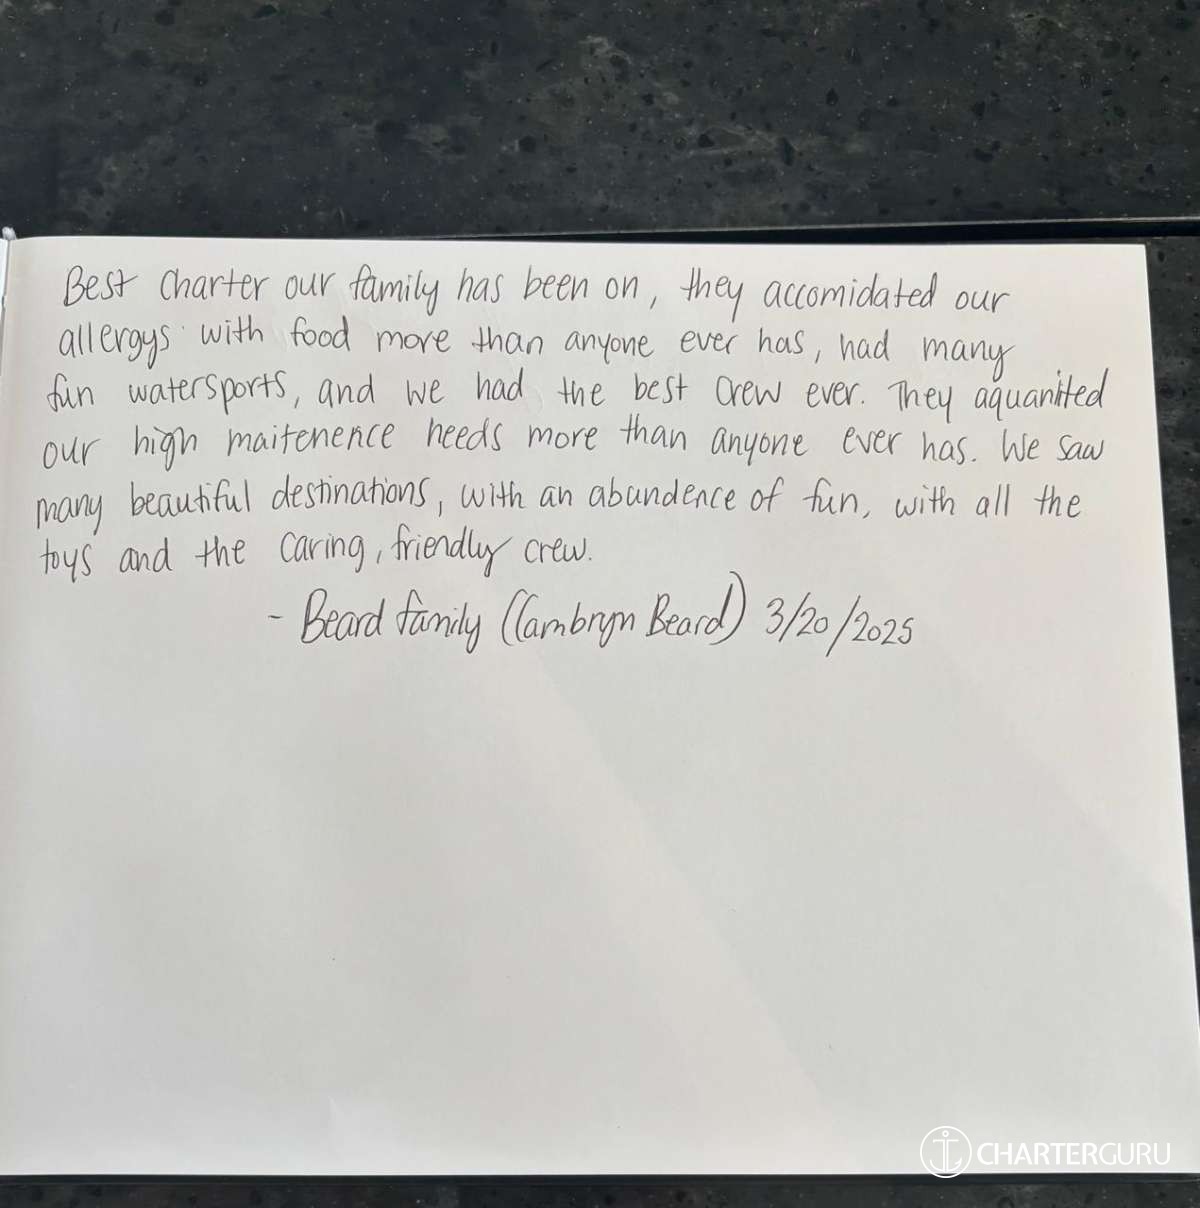 Best Charter our family has been on, they accomidated our
allergys with food more than anyone ever has, had many
fun watersports, and we had the best crew ever. They aquanited
our high maitenence needs more than anyone ever has. We saw
many beautiful destinations, with an abundence of fun, with all the
toys and the caring, friendly crew.
- Beard family (Cambryn Beard) 3/20/2025
CHARTERGURU